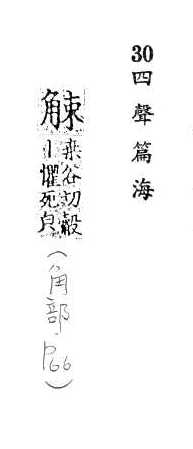 30四聲篇海
觫
桒谷切觳
懼死皃
(角部.P66)